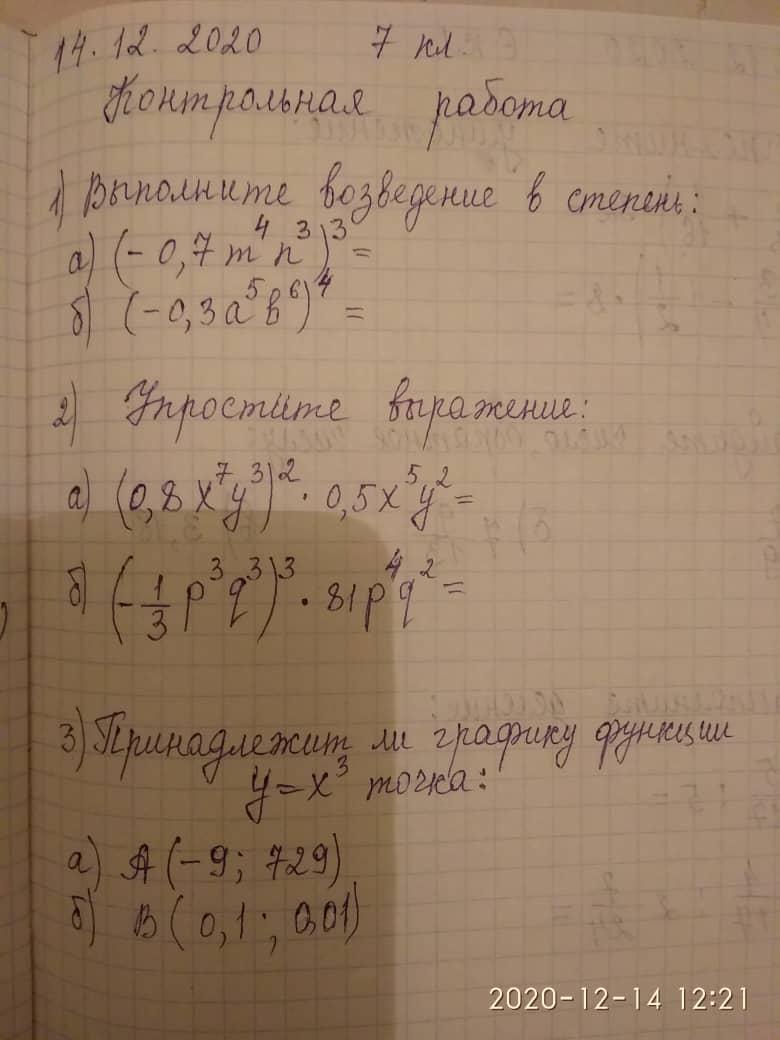 14.12.2020 7 кл.
Контрольная работа
1) Выполните возведение в степень:
а) (-0,7m⁴n³)³=
б) (-0,3a⁵b⁶)⁴=
2) Упростите выражение:
а) (0,8x⁷y³)²·0,5x⁵y²=
б) (-1/3 p³q³)³·81p⁴q²=
3) Принадлежит ли графику функции
y=x³ точка:
а) А(-9; 729)
б) В(0,1; 0,01)
2020-12-14 12:21